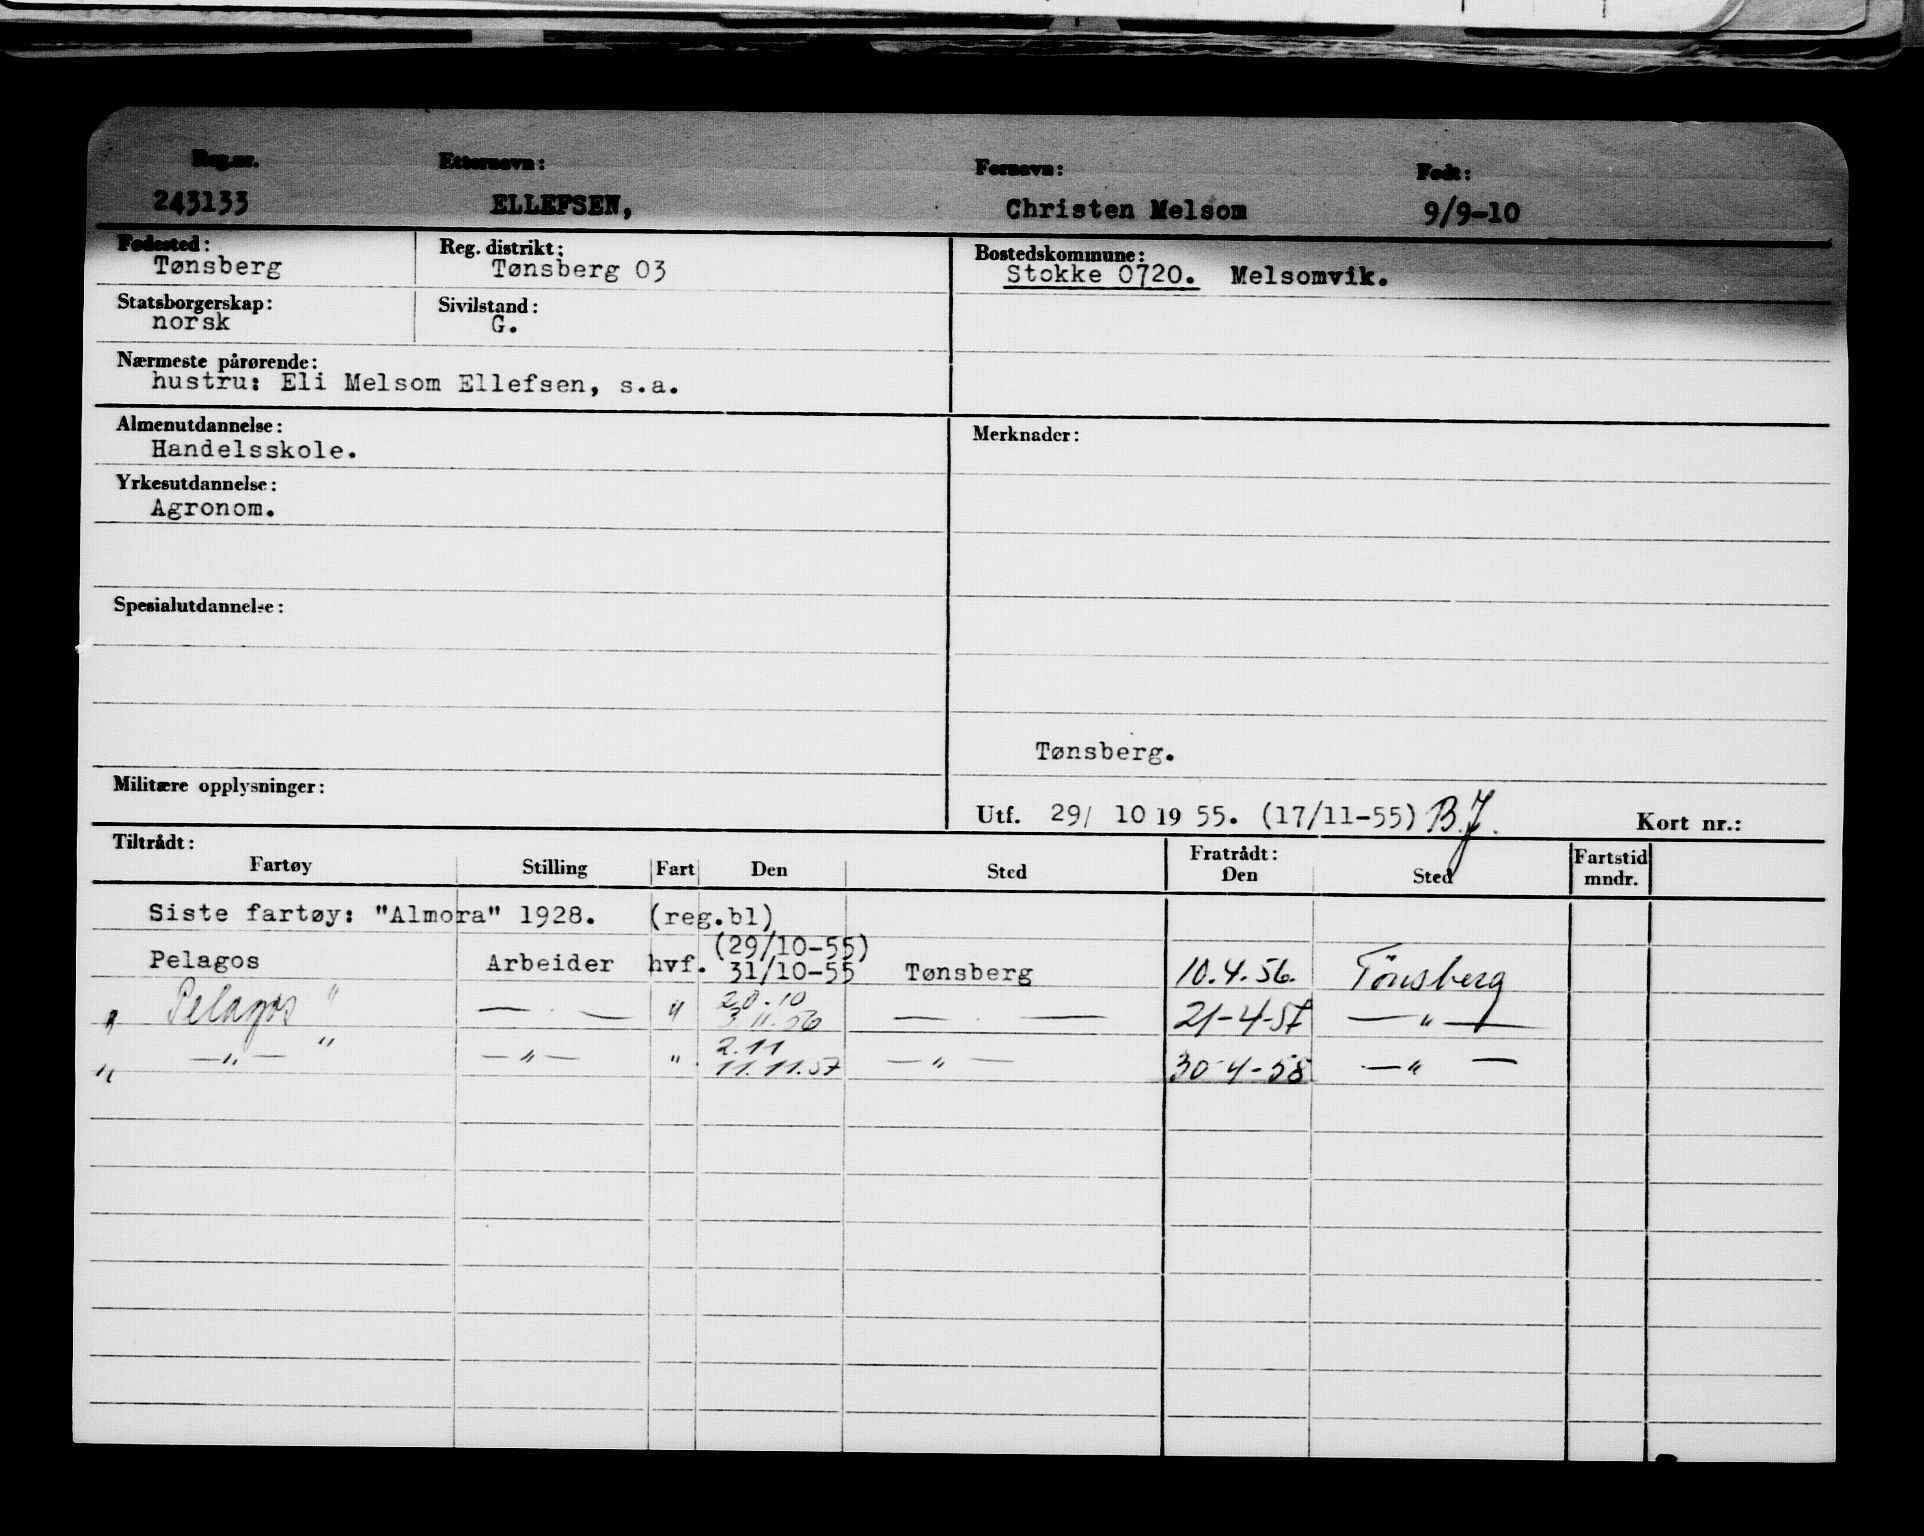 Reg.nr. Etternavn: Fornavn: Født:
243133 ELLEFSEN, Christen Melsom 9/9-10
Fødested: Reg. distrikt: Bostedskommune:
Tønsberg Tønsberg 03 Stokke 0720. Melsomvik.
Statsborgerskap: Sivilstand:
norsk G.
Nærmeste pårørende:
hustru: Eli Melsom Ellefsen, s.a.
Almenutdannelse: Merknader:
Handelsskole.
Yrkesutdannelse:
Agronom.
Spesialutdannelse:
Tønsberg.
Militære opplysninger:
Utf. 29/ 10 19 55. (17/11-55) B.J. Kort nr.:
Tiltrådt: Fratrådt: Fartstid
Fartøy Stilling Fart Den Sted Den Sted mndr.
Siste fartøy: "Almora" 1928. (reg.bl)
(29/10-55)
Pelagos Arbeider hvf. 31/10-55 Tønsberg 10.4.56. Tönsberg
20.10
" Pelagos " — . — " 3.11.56 — . — 21-4-57 — " —
2.11
" — " — " — " — " 11.11.57 — " — 30-4-58 — " —